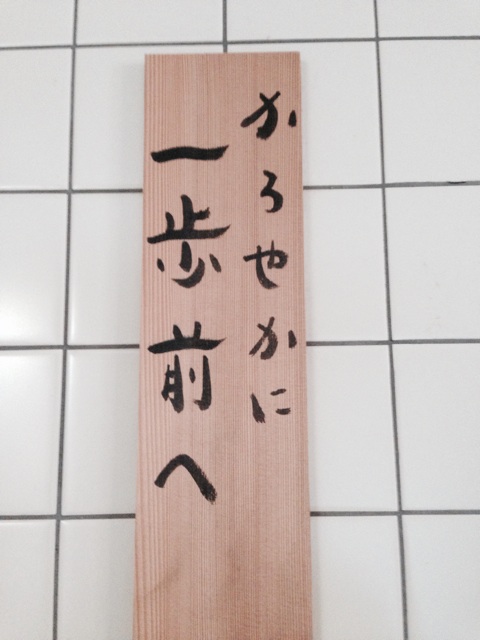 かろやかに
一歩前へ